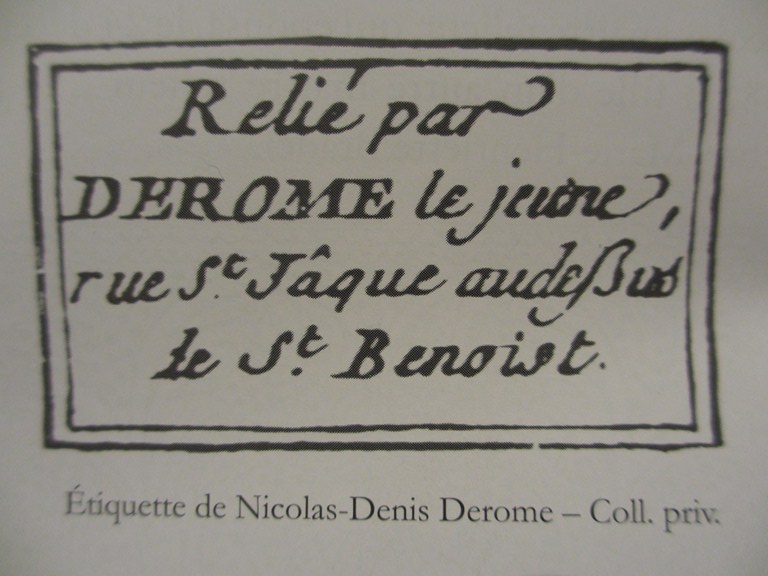 Relié par
DEROME le jeune,
rue S.t Jâque audeßus
de S.t Benoist.
Étiquette de Nicolas-Denis Derome – Coll. priv.